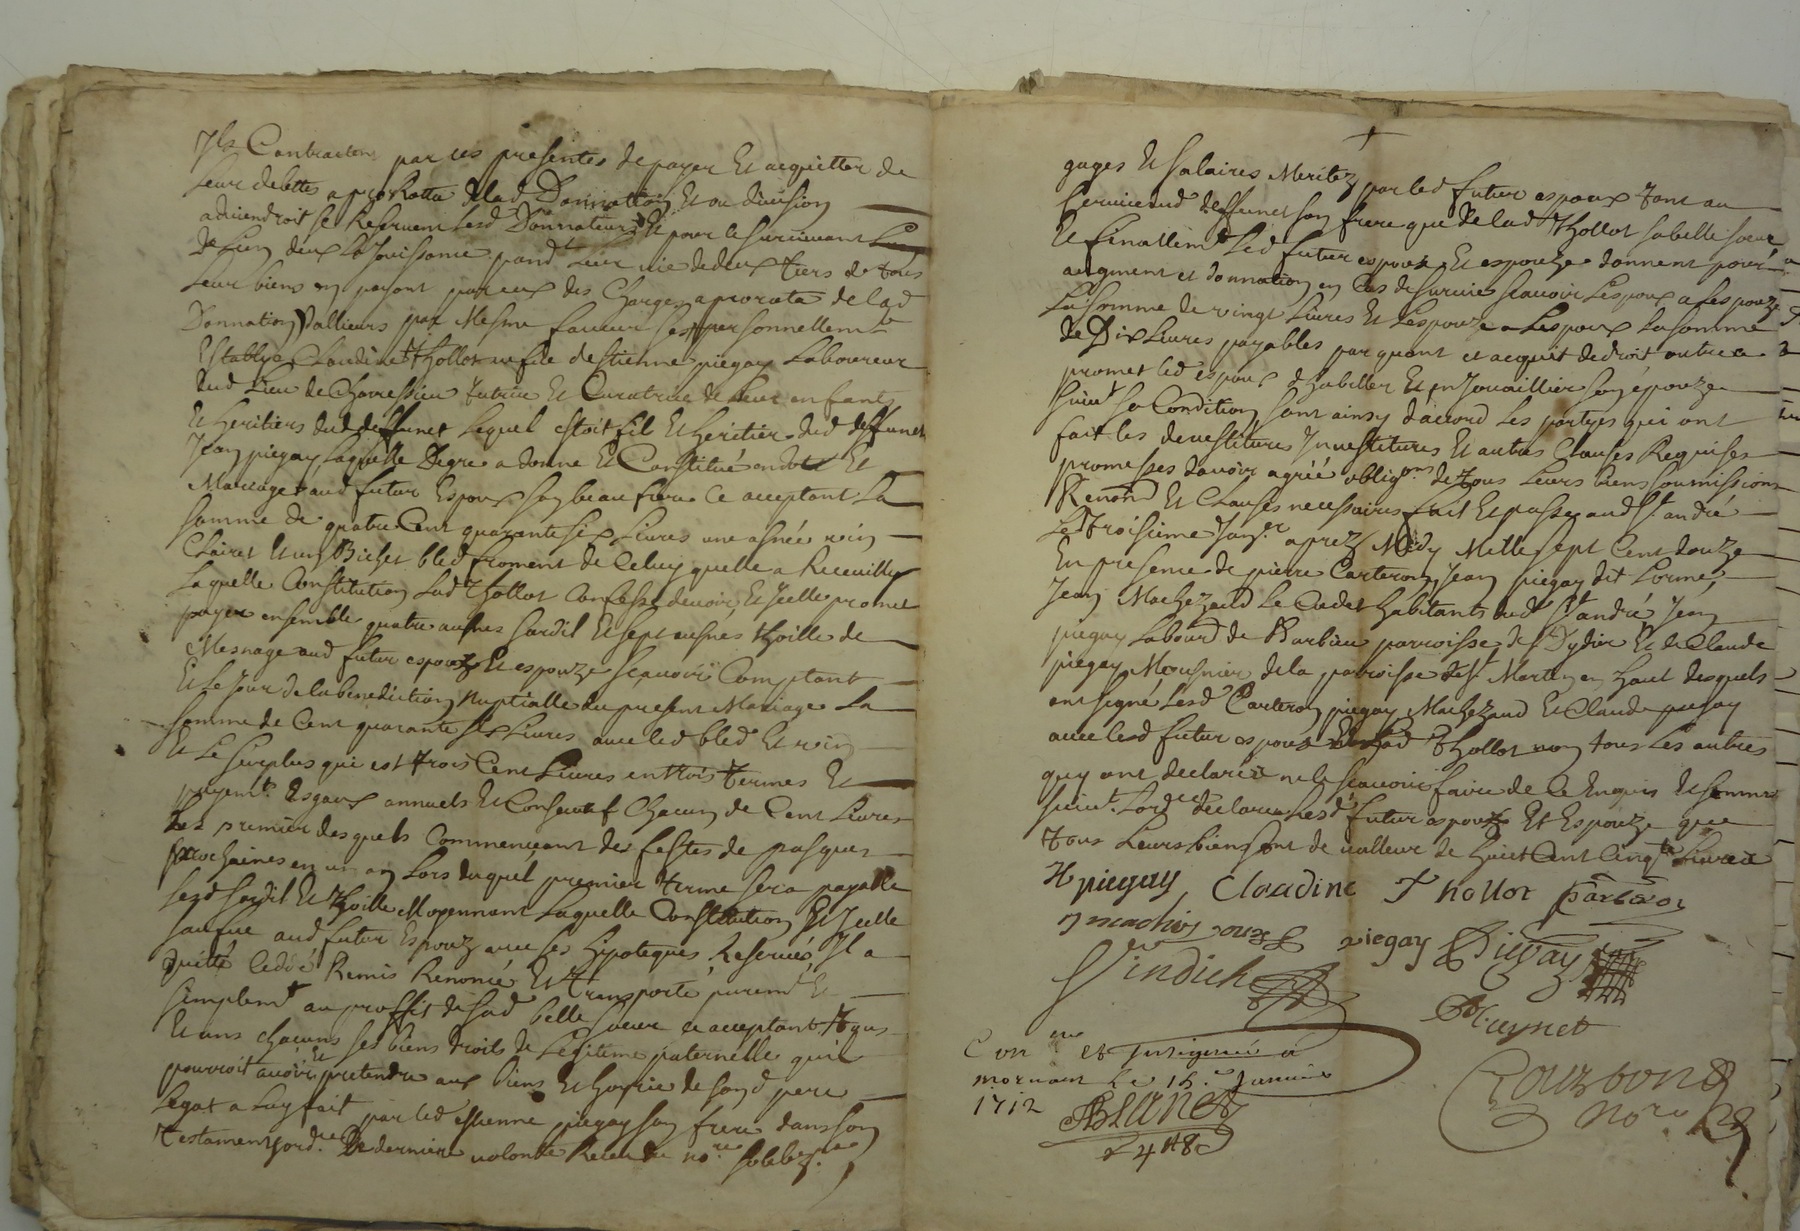 Ils Contractent par ces presentes de payer Et acquitter de
Leur debtes a prorhatta de lad Donnattion Et ou division
adviendroit se Reservent Lesd Donnateurs Et pour le survivant
de Lun deux La Jouissance pandt Leur vie de deux tiers de tous
Leur biens en payant par eux des Charges a prorata de lad
Donnation, dallieurs par Mesme faveur sest personnellemt
Establye Claudine thollot vefve destienne piegay Laboureur
dud Lieu de Chavessieu tutrice Et Curatrice de Leur enfants
Et heritiers dud deffunct Lequel estoit fil Et heritier dud deffunct
Jean piegay, Laquelle Degre a donne Et Constitué en dot Et
Mariage aud futur Espoux son beau frere Ce acceptant La
somme de quatre Cent quarante six Livres une asnée vin
Clairet Et un Bichet bled froment de Celuy quelle a Receuilly
Laquelle Constitution Lad thollot Confesse devoir, Et Icelle promet
payer ensemble quatre aulnes sardil Et sept aulnes thoille de
Mesnage aud futur espoux Et espouze scavoir Comptant
Et Le Jour de la benediction Nuptialle du present Mariage La
somme de Cent quarante six Livres avec led bled Et vin
Et Le surplus qui est trois Cent Livres en trois termes Et
payemts Esgaux annuels Et Consecutif Chacun de Cent Livres
Les premier desquels Commencant des festes de pasques
prochaines en un an Lors duquel premier terme sera payable
Lesd sardil Et thoille Moyennant Laquelle Constitution Et Icelle
saufve aud futur Espoux avec ses hipoteques Reserveé, Il a
quitté Ceddé Remis Renoncé Et transporté puremt Et
simplemt au proffit de sad belle soeur ce acceptant tous
Et uns chacuns ses biens droits de Legitime paternelle quil
pourroit avoir Et pretendre aux biens Et hoyrie de sond pere
Legat a Luy fait par led estienne piegay son frere dans son
testament, Dederniere volonté Receu du nore
gages Et salaires Meritez par led futur espoux tant au
service dud deffunct son frere que de lad thollot sa belle soeur
Et finallemt Led futur espoux Et espouze donnent pour
augment et donnation en Cas de survie scavoir Lespoux a Lespouze
La somme de vingt Livres Et Lespouze a Lespoux La somme
de Dix Livres payables par quant et acquit de droit outre ce
promet led espoux dhabiller Et en Jouaillier son épouze
suivt sa Condition sont ainsy daccord Les partyes qui ont
fait les devestitures Investitures Et autres Clauses Requises
promesses davoir agréé obligons de tous Leurs biens soumissions
Renond Et Clauses necessaires fait Et passe aud St. andré
Le troisieme Janer aprez Midy Mille sept Cent douze
En presence de pierre Carteron, Jean piegay dit Lormé,
Jean Machezaud Le Cadet habitants dud St andré, Jean
piegay Labourd de Barbieu parroisse de St Dydier Et de Claude
piegay Mousnier de la parroisse de St Martin en haut desquels
ont signé Lesd Carteron piegay Machezaud Et Claude piegay
avec lesd futur espoux Et Lad thollot non tous Les autres
quy ont declaréé ne le scavoir faire de Ce Enquis Et sommes
suivt. Lordce declarent Lesd futur espoux Et Espouze que
tous Leurs biens sont de valleur de huict Cent Cinqte Livres
piegay Claudine Thollot Carteron
piegay Piegay
Con
mornant Le 15.e Janvier
1712
Blanc
Bourbon
Nore